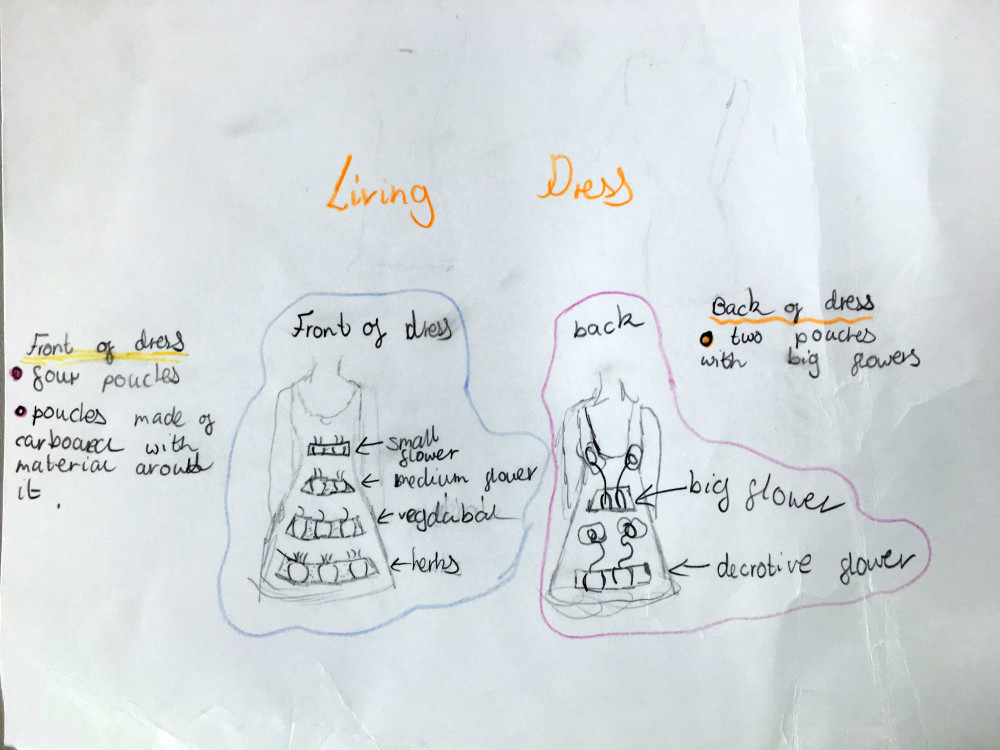 Living Dress
Front of dress
four pouches
pouches made of
carboared with
material around
it.
Front of dress
small
flower
medium flower
herbs
back
big flower
decrotive flower
Back of dress
two pouches
with big flowers